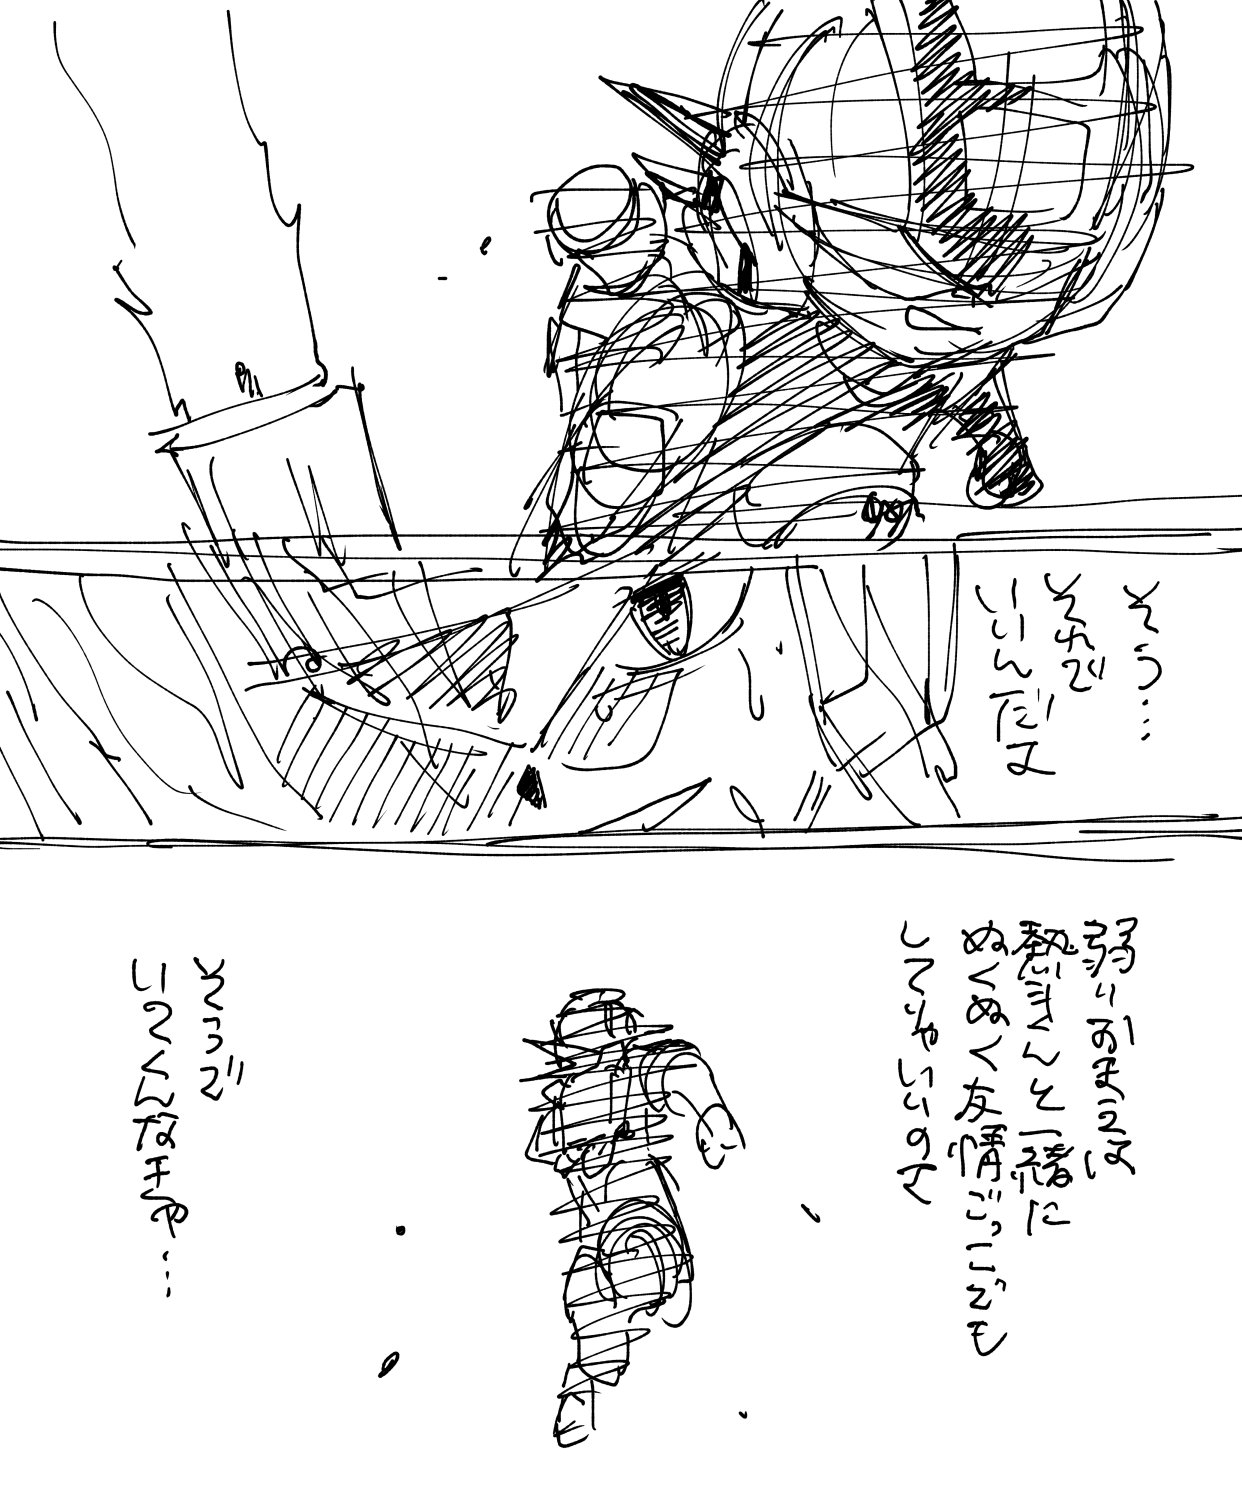 そう…
それで
いいんだよ
弱りおまえは
熱斗くんと一緒に
ぬくぬく友情ごっこでも
してりゃいいのさ
そうで
いてくんなきゃ…